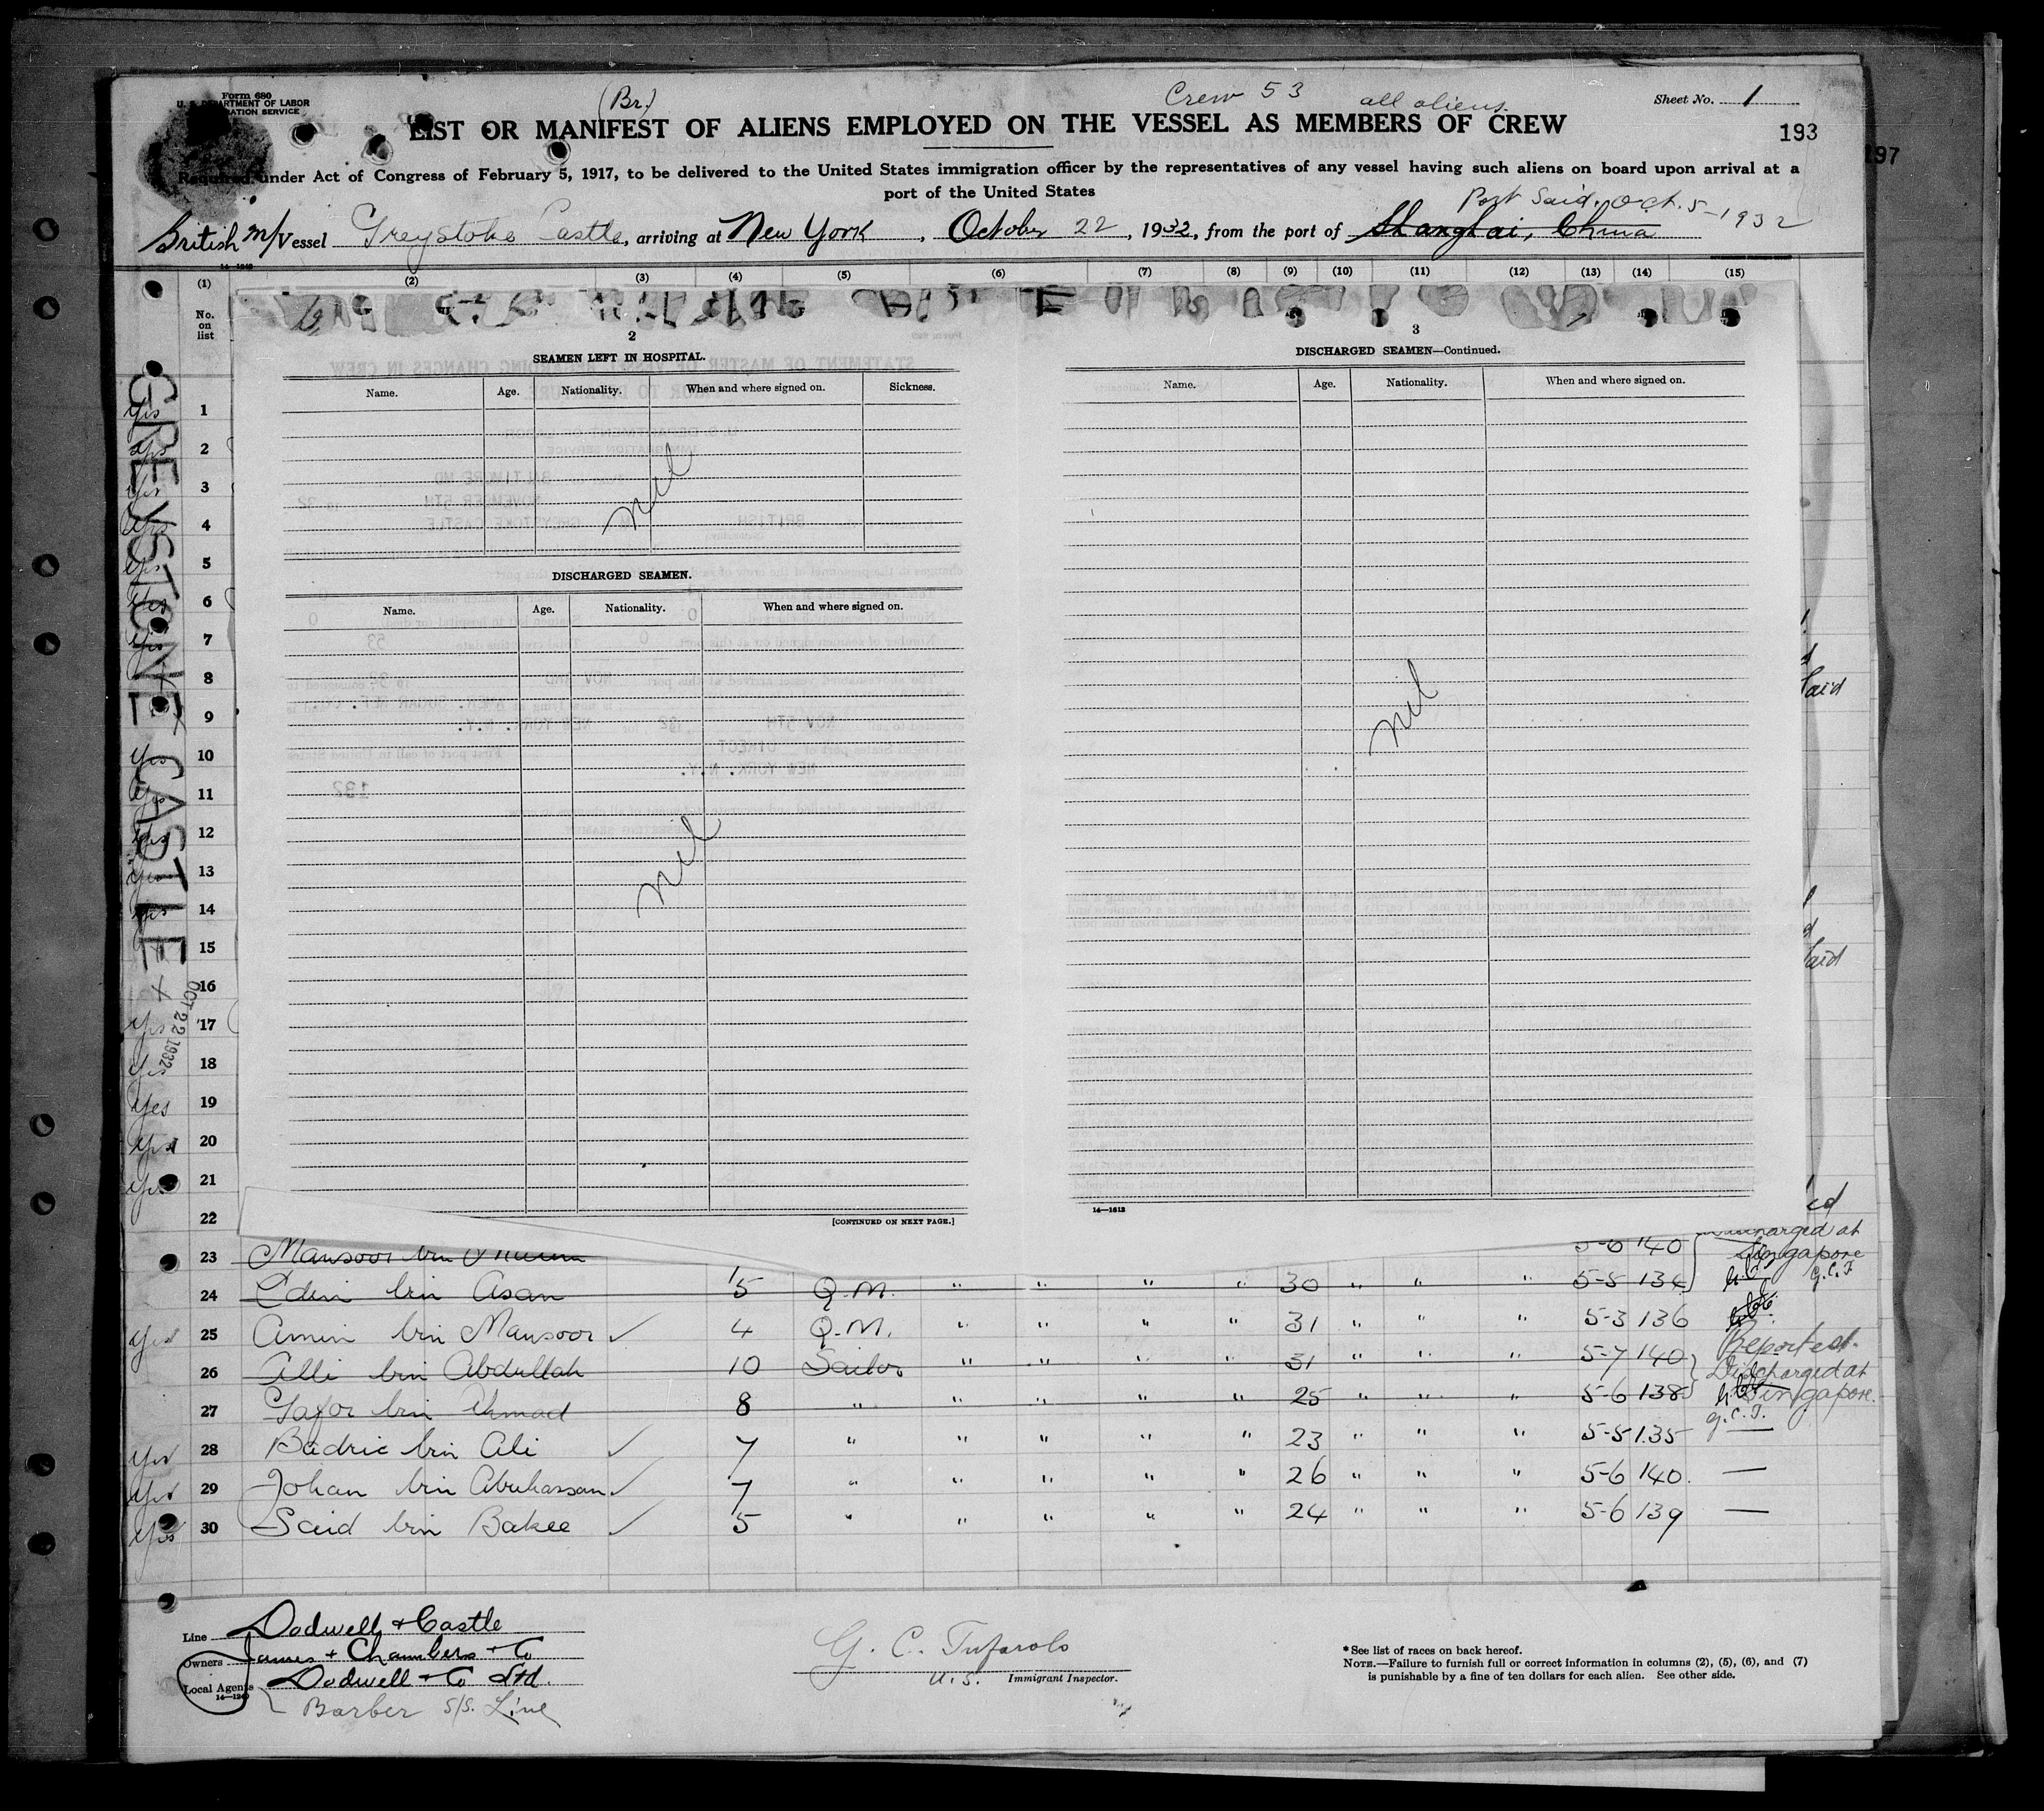 Form 680
U. S. DEPARTMENT OF LABOR
(Br.)
Crew 53 all aliens.
Sheet No. 1
LIST OR MANIFEST OF ALIENS EMPLOYED ON THE VESSEL AS MEMBERS OF CREW
193
197
Required under Act of Congress of February 5, 1917, to be delivered to the United States immigration officer by the representatives of any vessel having such aliens on board upon arrival at a
port of the United States
Port Said, Oct. 5-1932
British m/Vessel Greystoke Castle, arriving at New York, October 22, 1932, from the port of Shanghai, China
(1) (2) (3) (4) (5) (6) (7) (8) (9) (10) (11) (12) (13) (14) (15)
No.
on
list
GREYSTONE CASTLE
OCT 22 1932
2
SEAMEN LEFT IN HOSPITAL.
Name. Age. Nationality. When and where signed on. Sickness.
nil
DISCHARGED SEAMEN.
Name. Age. Nationality. When and where signed on.
nil
[CONTINUED ON NEXT PAGE.]
3
DISCHARGED SEAMEN—Continued.
Name. Age. Nationality. When and where signed on.
nil
14—1613
Yes 1
Yes 2
Yes 3
Yes 4
Yes 5
Yes 6
Yes 7
8
9
Yes 10
Yes 11
Yes 12
Yes 13
Yes 14
15
16
Yes 17
Yes 18
Yes 19
Yes 20
Yes 21
22
23 Mansoor bin 5-6 140 Discharged at Singapore
24 Edin bin Asan 5 Q.M. " " " " 30 " " " 5-5 134 G.C.T.
Yes 25 Amin bin Mansoor ✓ 4 Q.M. " " " " 31 " " " 5-3 136
Reported.
26 Alli bin Abdullah 10 Sailor " " " " 31 " " " 5-7 140 Discharged at
27 Gafor bin Ahmad 8 " " " " " 25 " " " 5-6 138 Singapore.
G.C.T.
Yes 28 Badric bin Ali ✓ 7 " " " " " 23 " " " 5-5 135 —
Yes 29 Johan bin Abuhassan ✓ 7 " " " " " 26 " " " 5-6 140. —
Yes 30 Said bin Bakee ✓ 5 " " " " " 24 " " " 5-6 139 —
Line Dodwell + Castle
Owners James + Chambers + Co
Local Agents Dodwell + Co Ltd.
14—1240
Barber S/S. Line
G. C. Tufarolo
U.S. Immigrant Inspector.
*See list of races on back hereof.
NOTE.—Failure to furnish full or correct information in columns (2), (5), (6), and (7)
is punishable by a fine of ten dollars for each alien. See other side.